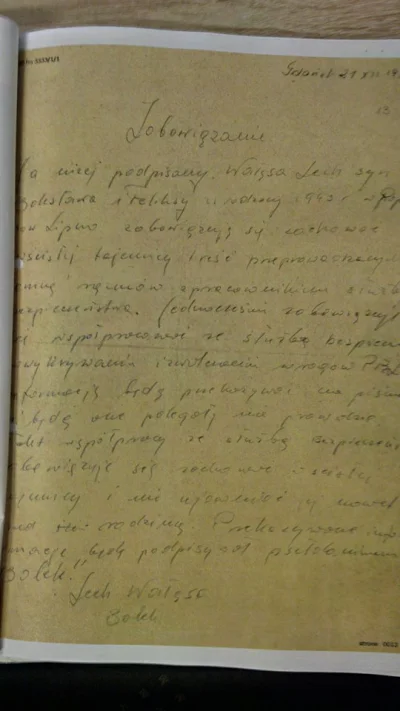 Gdańsk 21 XII 19
13
Zobowiązanie
a niżej podpisany Wałęsa Lech syn
Bolesława i Feliksy urodzony 1943 r w
Lipno zobowiązuję się zachować
w ścisłej tajemnicy treść przeprowadzanych
rozmów z pracownikiem służb
ezpieczeństwa. Jednocześnie zobowiązuj
współpracować ze służbą bezpiecz
wykrywaniu i zwalczaniu wrogów PRL
nformację będę przekazywać na piśmie
będą one polegały na prawdzie.
akt współpracy ze służbą ezpieczeń
obowiązuje się zachować w ścisłej
ajemnicy i nie ujawniać jej nawet
rodziną. Przekazywane info
macje będę podpisywał pseudonimem
Bolek"
Lech Wałęsa
Bolek
strona: 0022